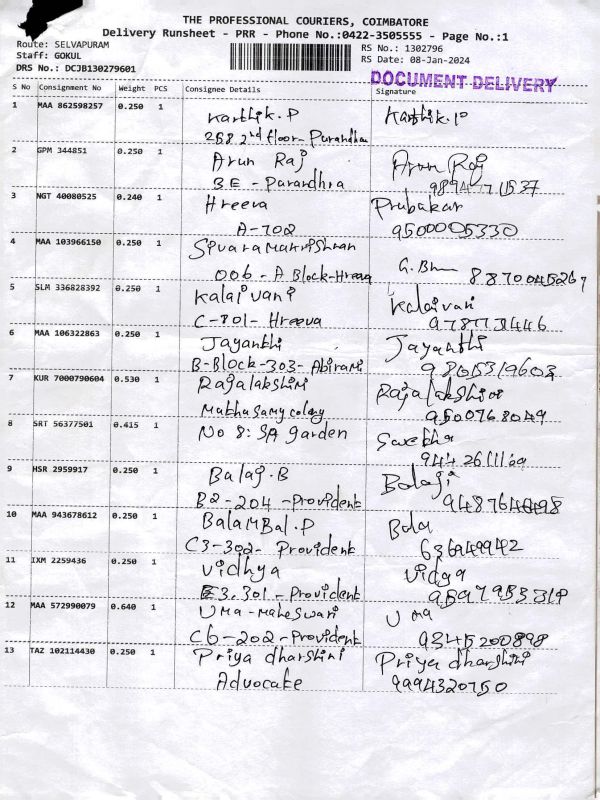 THE PROFESSIONAL COURIERS, COIMBATORE
Delivery Runsheet - PRR - Phone No.:0422-3505555 - Page No.:1
Route: SELVAPURAM
RS No.: 1302796
Staff: GOKUL
RS Date: 08-Jan-2024
DRS No.: DCJB130279601
DOCUMENT DELIVERY
S No Consignment No Weight PCS Consignee Details Signature
1 MAA 862598257 0.250 1 Karthik.P Karthik.P
268 2nd floor- Purandhar
2 GPM 344851 0.250 1 Arun Raj Arun Raj
3E - Purandhra
3 NGT 40080525 0.240 1 Hreeva Prubakar
A-702 9500005330
4 MAA 103966150 0.250 1 Sivaramakrishnan
006 - A Block-Hreeva 8870045267
5 SLM 336828392 0.250 1 Kalaivani Kalaivani
C-801- Hreeva
6 MAA 106322863 0.250 1 Jayanthi Jayanthi
B-Block-303- Abirami 9805319603
7 KUR 7000790604 0.530 1 Rajalakshmi Rajalakshmi
Muthusamy colony 9500768049
8 SRT 56377501 0.415 1 No 8: SA garden Swetha
9 HSR 2959917 0.250 1 Balaj.B Balaji
B2-204 -Provident
10 MAA 943678612 0.250 1 BalaMBal.P Bala
C3-302- Provident
11 IXM 2259436 0.250 1 Vidhya Vidya
E3,301-Provident
12 MAA 572990079 0.640 1 Uma-Maheswari Uma
C6-202-Provident 9345200898
13 TAZ 102114430 0.250 1 Priya dharshini Priya dharshini
Advocate 9994320750